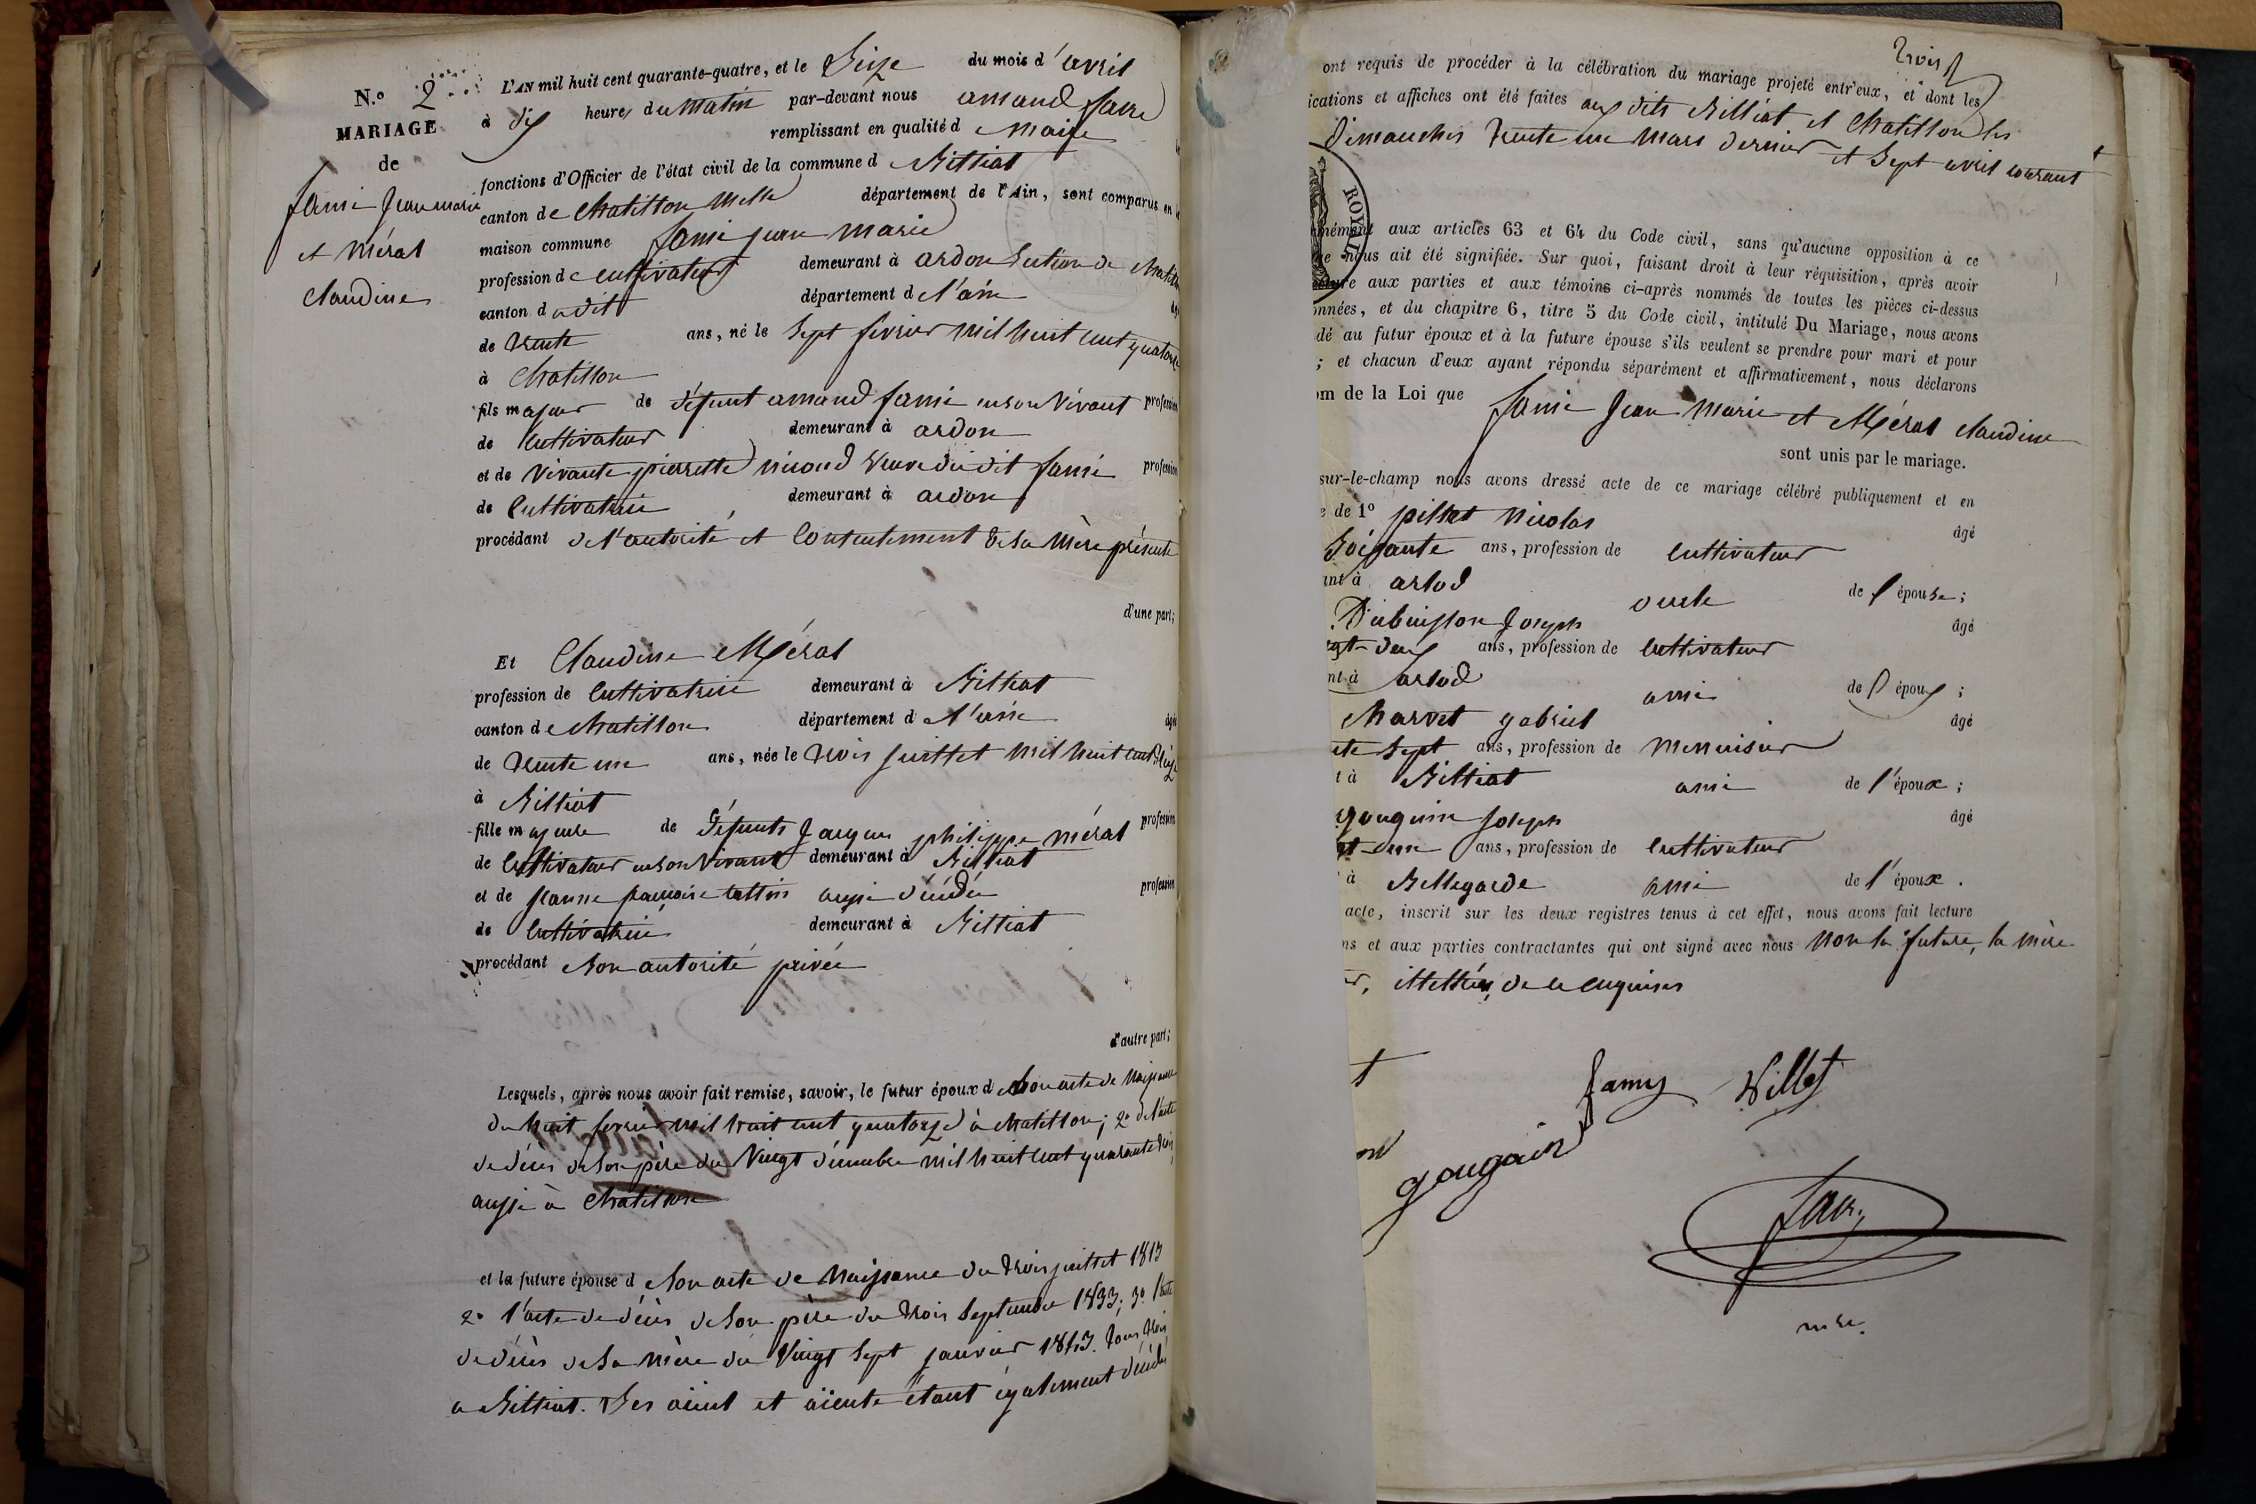 N.o 2
MARIAGE
de
famie Jean marie
et Mérat
Claudine
L'AN mil huit cent quarante-quatre, et le Seize du mois d'avril
à dix heures du matin par-devant nous amand favre
remplissant en qualité de Maire
fonctions d'Officier de l'état civil de la commune d Billiat
canton de Chatillon Melle département de l'Ain, sont comparus en
maison commune famie jean marie
profession de Cultivateur demeurant à ardon Section de Chatillon
canton dudit département de l'ain
de trente ans, né le Sept fevrier mil huit cent quatorze
à Chatillon
fils majeur de défunt amand famie en son vivant profession
de Cultivateur demeurant à ardon
et de vivante pierrette nicoud veuve du dit famie profession
de Cultivatrice demeurant à ardon
procédant de l'autorité et Consentement de sa Mère présente
d'une part;
Et Claudine Mérat
profession de Cultivatrice demeurant à Billiat
canton de Chatillon département de l'ain âgée
de trente un ans, née le trois juillet mil huit cent treize
à Billiat
fille majeure de Défunts Jacques philippe mérat profession
de Cultivateur en son vivant demeurant à Billiat
et de jeanne françoise aussi décédée profession
de Cultivatrice demeurant à Billiat
procédant de son autorité privée
d'autre part;
Lesquels, après nous avoir fait remise, savoir, le futur époux de son acte de Naissance
du huit fevrier mil huit cent quatorze à Chatillon; 2o de l'acte
de décès de son père du Vingt décembre mil huit cent quarante trois
aussi à Chatillon
et la future épouse de son acte de Naissance du trois juillet 1813
2o l'acte de décès de son père du trois Septembre 1833; 3o l'acte
de décès de sa Mère du Vingt Sept janvier 1843. tous trois
a Billiat. Ses aieul et aieule étant également décédés
trois
ont requis de procéder à la célébration du mariage projeté entr'eux, et dont les
ications et affiches ont été faites aux dits Billiat et Chatillon les
Dimanches trente un Mars dernier et Sept avril courant
ROYAL
mément aux articles 63 et 64 du Code civil, sans qu'aucune opposition à ce
ge nous ait été signifiée. Sur quoi, faisant droit à leur réquisition, après avoir
ecture aux parties et aux témoins ci-après nommés de toutes les pièces ci-dessus
onnées, et du chapitre 6, titre 5 du Code civil, intitulé Du Mariage, nous avons
dé au futur époux et à la future épouse s'ils veulent se prendre pour mari et pour
; et chacun d'eux ayant répondu séparément et affirmativement, nous déclarons
om de la Loi que famie Jean Marie et Mérat Claudine
sont unis par le mariage.
sur-le-champ nous avons dressé acte de ce mariage célébré publiquement et en
e de 1o pillet Nicolas âgé
Soixante ans, profession de Cultivateur
ant à arlod oncle de l'épouse;
Dubuisson Joseph âgé
deux ans, profession de Cultivateur
nt à arlod ami de l'époux;
Charvet gabriel âgé
te Sept ans, profession de Menuisier
t à Billiat ami de l'époux;
gouguin Joseph âgé
ans, profession de Cultivateur
à Bellegarde ami de l'époux.
acte, inscrit sur les deux registres tenus à cet effet, nous avons fait lecture
ns et aux parties contractantes qui ont signé avec nous Non la future, la mère
illettrées, de ce enquises
famy Pillet
gouguin
favre
mre.